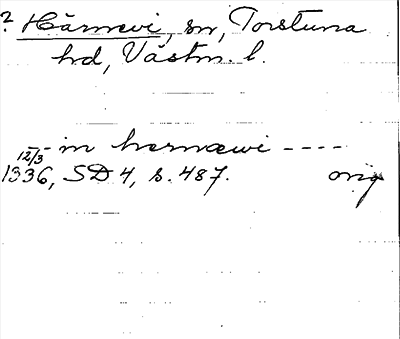 ? Härnevi, sn, Torstuna
hd, Västm. l.
in hærnæwi ----
12/3
1336, SD 4, s. 487. orig